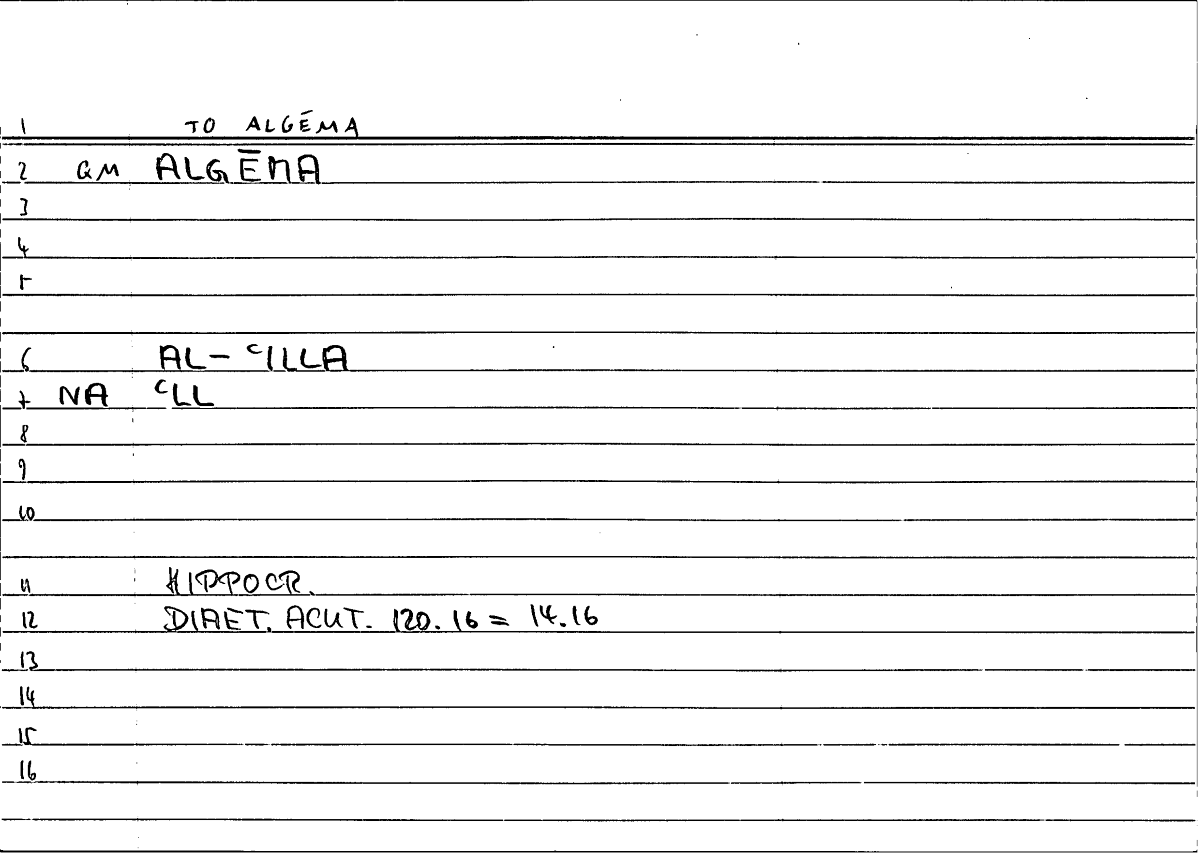 1 TO ALGĒMA
2 GM ALGĒMA
3
4
5
6 AL- ᶜILLA
7 NA ᶜLL
8
9
10
11 HIPPOCR.
12 DIAET. ACUT. 120.16 = 14.16
13
14
15
16